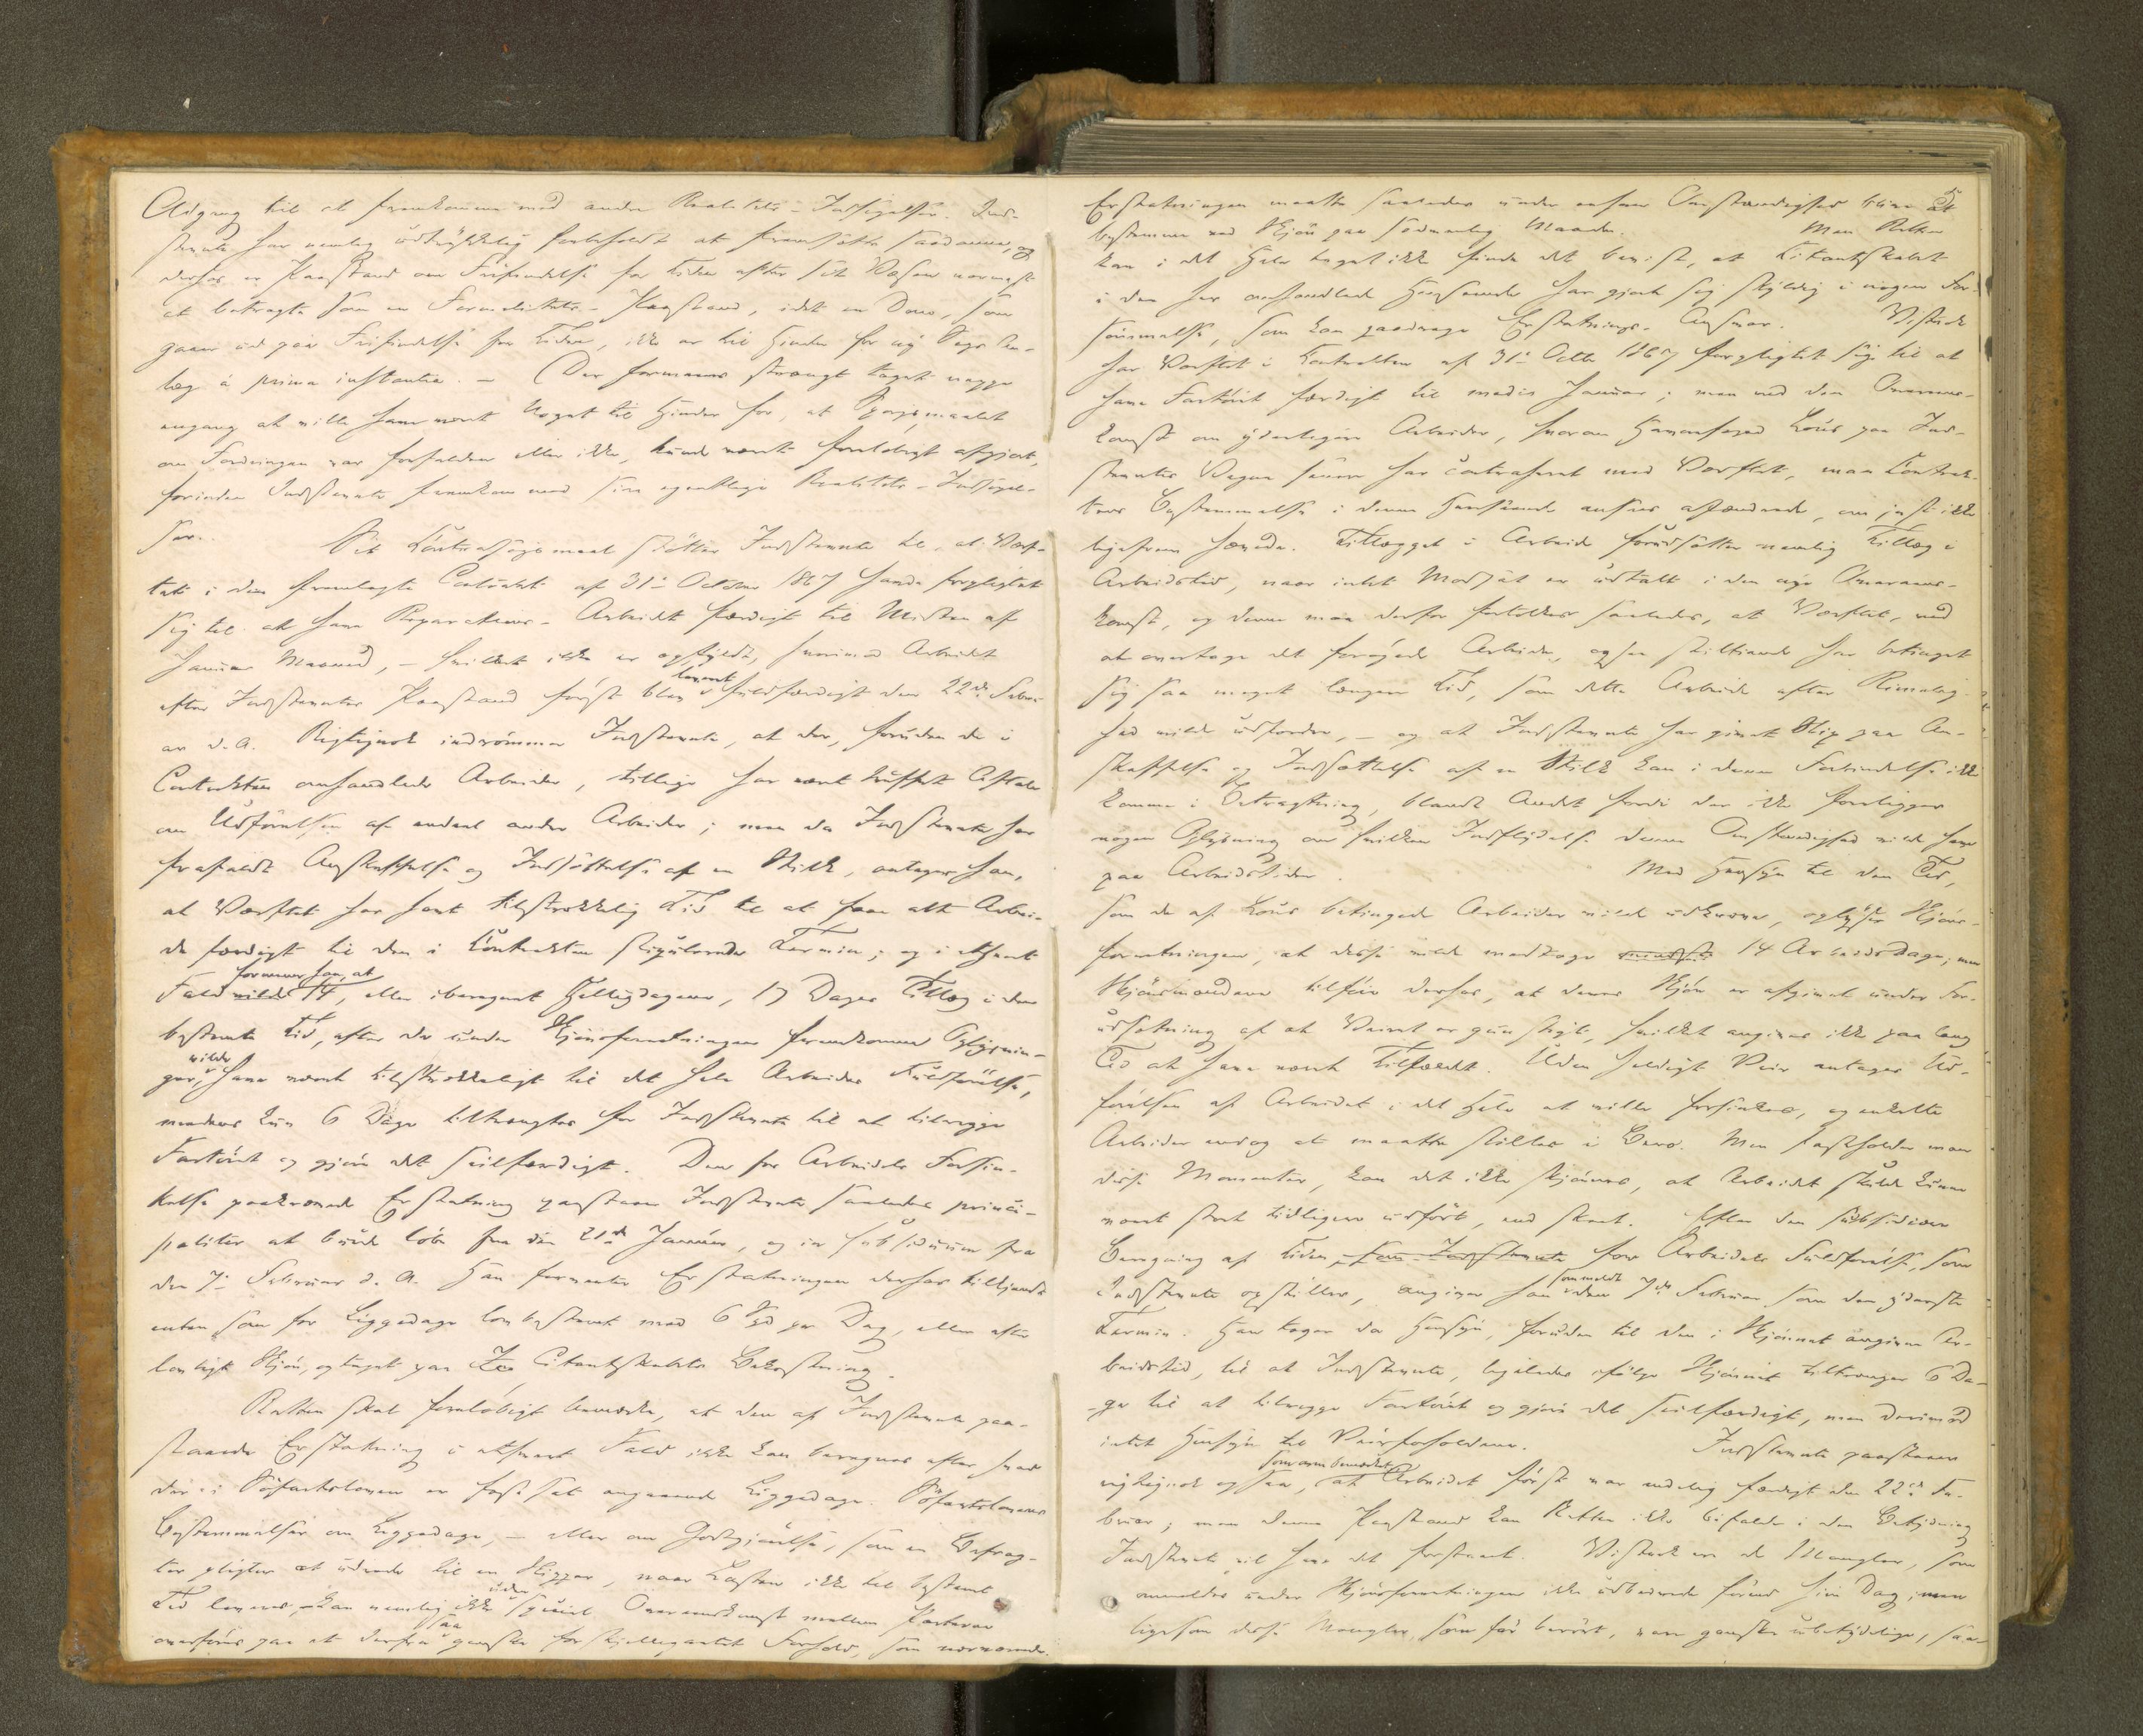 Adgang til at fremkomme med andre Realitets-Indsigelser. Ind-
stevnte har nemlig udtrykkelig forbeholdt at fremsætte saadanne, og
derfor er Paastand om Frifindelse for Tiden efter sit Væsen nærmest
at betragte som en Formalitets-Paastand, idet en Dom, som
gaaer ud paa Frifindelse for Tiden, ikke er til Hinder for ny Sags An-
læg á prima instantia. – Der formenes strængt taget neppe
engang at ville have været Noget til Hinder for, at Spørgsmaalet
om Fordringen var forfalden eller ikke, kunde været foreløbigt afgjort,
forinden Indstevnte fremkom med sine egentlige Realitets-Indsigel-
ser.
Sit Contrasøgsmaal støtter Indstevnte til, at Værf-
tet i den fremlagte Contrakt af 31te October 1867 havde forpligtet
sig til at have Reparations-Arbeidet færdigt til Midten af
Januar Maaned, – hvilket ikke er opfyldt, hvorimod Arbeidet
efter Indstevntes Paastand først blev leveret fuldfærdigt den 22de Febru-
ar d. A. Rigtignok indrømmer Indstevnte, at der, foruden de i
Contrakten omhandlede Arbeider, tillige har været truffet Aftale
om Udførelsen af endeel andre Arbeider; men da Indstevnte har
frafaldt Anskaffelse og Indsættelse af en Stilk, antager han,
at Værftet har havt tilstrækkelig Tid til at faae alt Arbei-
de færdigt til den i Contrakten stipulerede Termin; og i ethvert
Fald formener han, at 14, eller iberegnet Helligdagene, 17 Dages Tillæg i den
bestemte Tid, efter de under Skjønsforretningen fremkomne Oplysnin-
ger, vilde have været tilstrækkeligt til det hele Arbeides Fuldførelse,
medens kun 6 Dage tiltrængtes for Indstevnte til at tilrigge
Fartøiet og gjøre det seilfærdigt. Den for Arbeidets Forsin-
kelse paakrævede Erstatning paastaaer Indstevnte saaledes princi-
paliter at burde løbe fra den 21de Januar, og in subsidium fra
den 7de Februar d. A. Han formenter Erstatningen derfor tilkjendt
enten som for Liggedage lovbestemt med 6 Spd pr Dag, eller efter
lovligt Skjøn, optaget paa Citantskabets Bekostning.
Retten skal foreløbigt bemærke, at den af Indstevnte paa-
staaede Erstatning i ethvert Fald ikke kan beregnes efter hvad
der i Søfartsloven er fastsat angaaende Liggedage. Søfartslovens
Bestemmelser om Liggedage, – eller om Godtgjørelse, som en Befrag-
ter pligter at udrede til en Skipper, naar Lasten ikke til bestemt
Tid leveres, – kan nemlig ikke uden speciel Overeenskomst mellem Parterne
overføres paa et derfra saa ganske forskjelligartet Forhold, som nærværende.
Erstatningen maatte saaledes under enhver Omstændighed blive at
bestemme ved Skjøn paa sædvanlig Maade. Men Retten
kan i det Hele taget ikke finde det beviist, at Citantskabet
i den her omhandlede Henseende har gjort sig skyldig i nogen For-
sømmelse, som kan paadrage Erstatnings-Ansvar. Vistnok
har Værftet i Contrakten af 31te Octbr 1867 forpligtet sig til at
have Fartøiet færdigt til medio Januar; men ved den Overeens-
komst om yderligere Arbeider, hvorom Havnefoged Lous paa Ind-
stevntes Vegne senere har contraheret med Værftet, maa Contrak-
tens Bestemmelse i denne Henseende ansees aſændrede, om just ikke
ligefrem hævede. Tillægget i Arbeide forudsætter nemlig Tillæg i
Arbeidstid, naar intet Modsat er udtalt i den nye Overeens-
komst, og denne maa derfor fortolkes saaledes, at Værftet, ved
at overtage det forøgede Arbeide, ogsaa stiltiende har betinget
sig saa meget længere Tid, som dette Arbeide efter Rimelig-
hed vilde udfordre, – og at Indstevnte har givet Slip paa An-
skaffelse og Indsættelse af en Stilk kan i denne Forbindelse ikke
komme i Betragtning, blandt Andet fordi der ikke foreligger
nogen Oplysning om hvilken Indflydelse denne Omstændighed vilde have
paa Arbeidstiden. Med Hensyn til den Tid,
som de af Lous betingede Arbeider vilde udkræve, oplyser Skjøns-
forretningen, at disse vilde medtage 14 Arbeidsdage; men
Skjønsmændene tilføie derhos, at denne Skjøn er afgivet under For-
udsætning af at Veiret er gunstigt, hvilket angives ikke paa lang
Tid at have været Tilfældet. Uden heldigt Veir antages Ud-
førelsen af Arbeidet i det Hele at ville forsinkes, og enkelte
Arbeider endog at maatte stilles i Bero. Men fastholder man
disse Momenter, kan det ikke skjønnes, at Arbeidet skulde kunne
været stort tidligere udført, end skeet. Efter den subsidiære
Beregning af Tiden for Arbeidets Fuldførelse, som
Indstevnte opstiller, angiver han som meldt den 7de Februar som den yderste
Termin. Han tager da Hensyn, foruden til den i Skjønnet angivne Ar-
beidstid, til at Indstevnte, ligeledes ifølge Skjønnet tiltrænger 6 Da-
ge til at tilrigge Fartøiet og gjøre det seilfærdigt, men derimod
intet Hensyn til Veirforholdene. Indstevnte paastaaer
rigtignok ogsaa, som ovenbemærket at Arbeidet først var endelig færdigt den 22de Fe-
bruar; men denne Paastand kan Retten ikke bifalde i den Betydning
Indstevnte vil have det forstaaet. Vistnok ere de Mangler, som
anmeldtes under Skjønsforretningen ikke udbedrede førend hiin Dag; men
ligesom disse Mangler, som før berørt, vare ganske ubetydelige, saa-